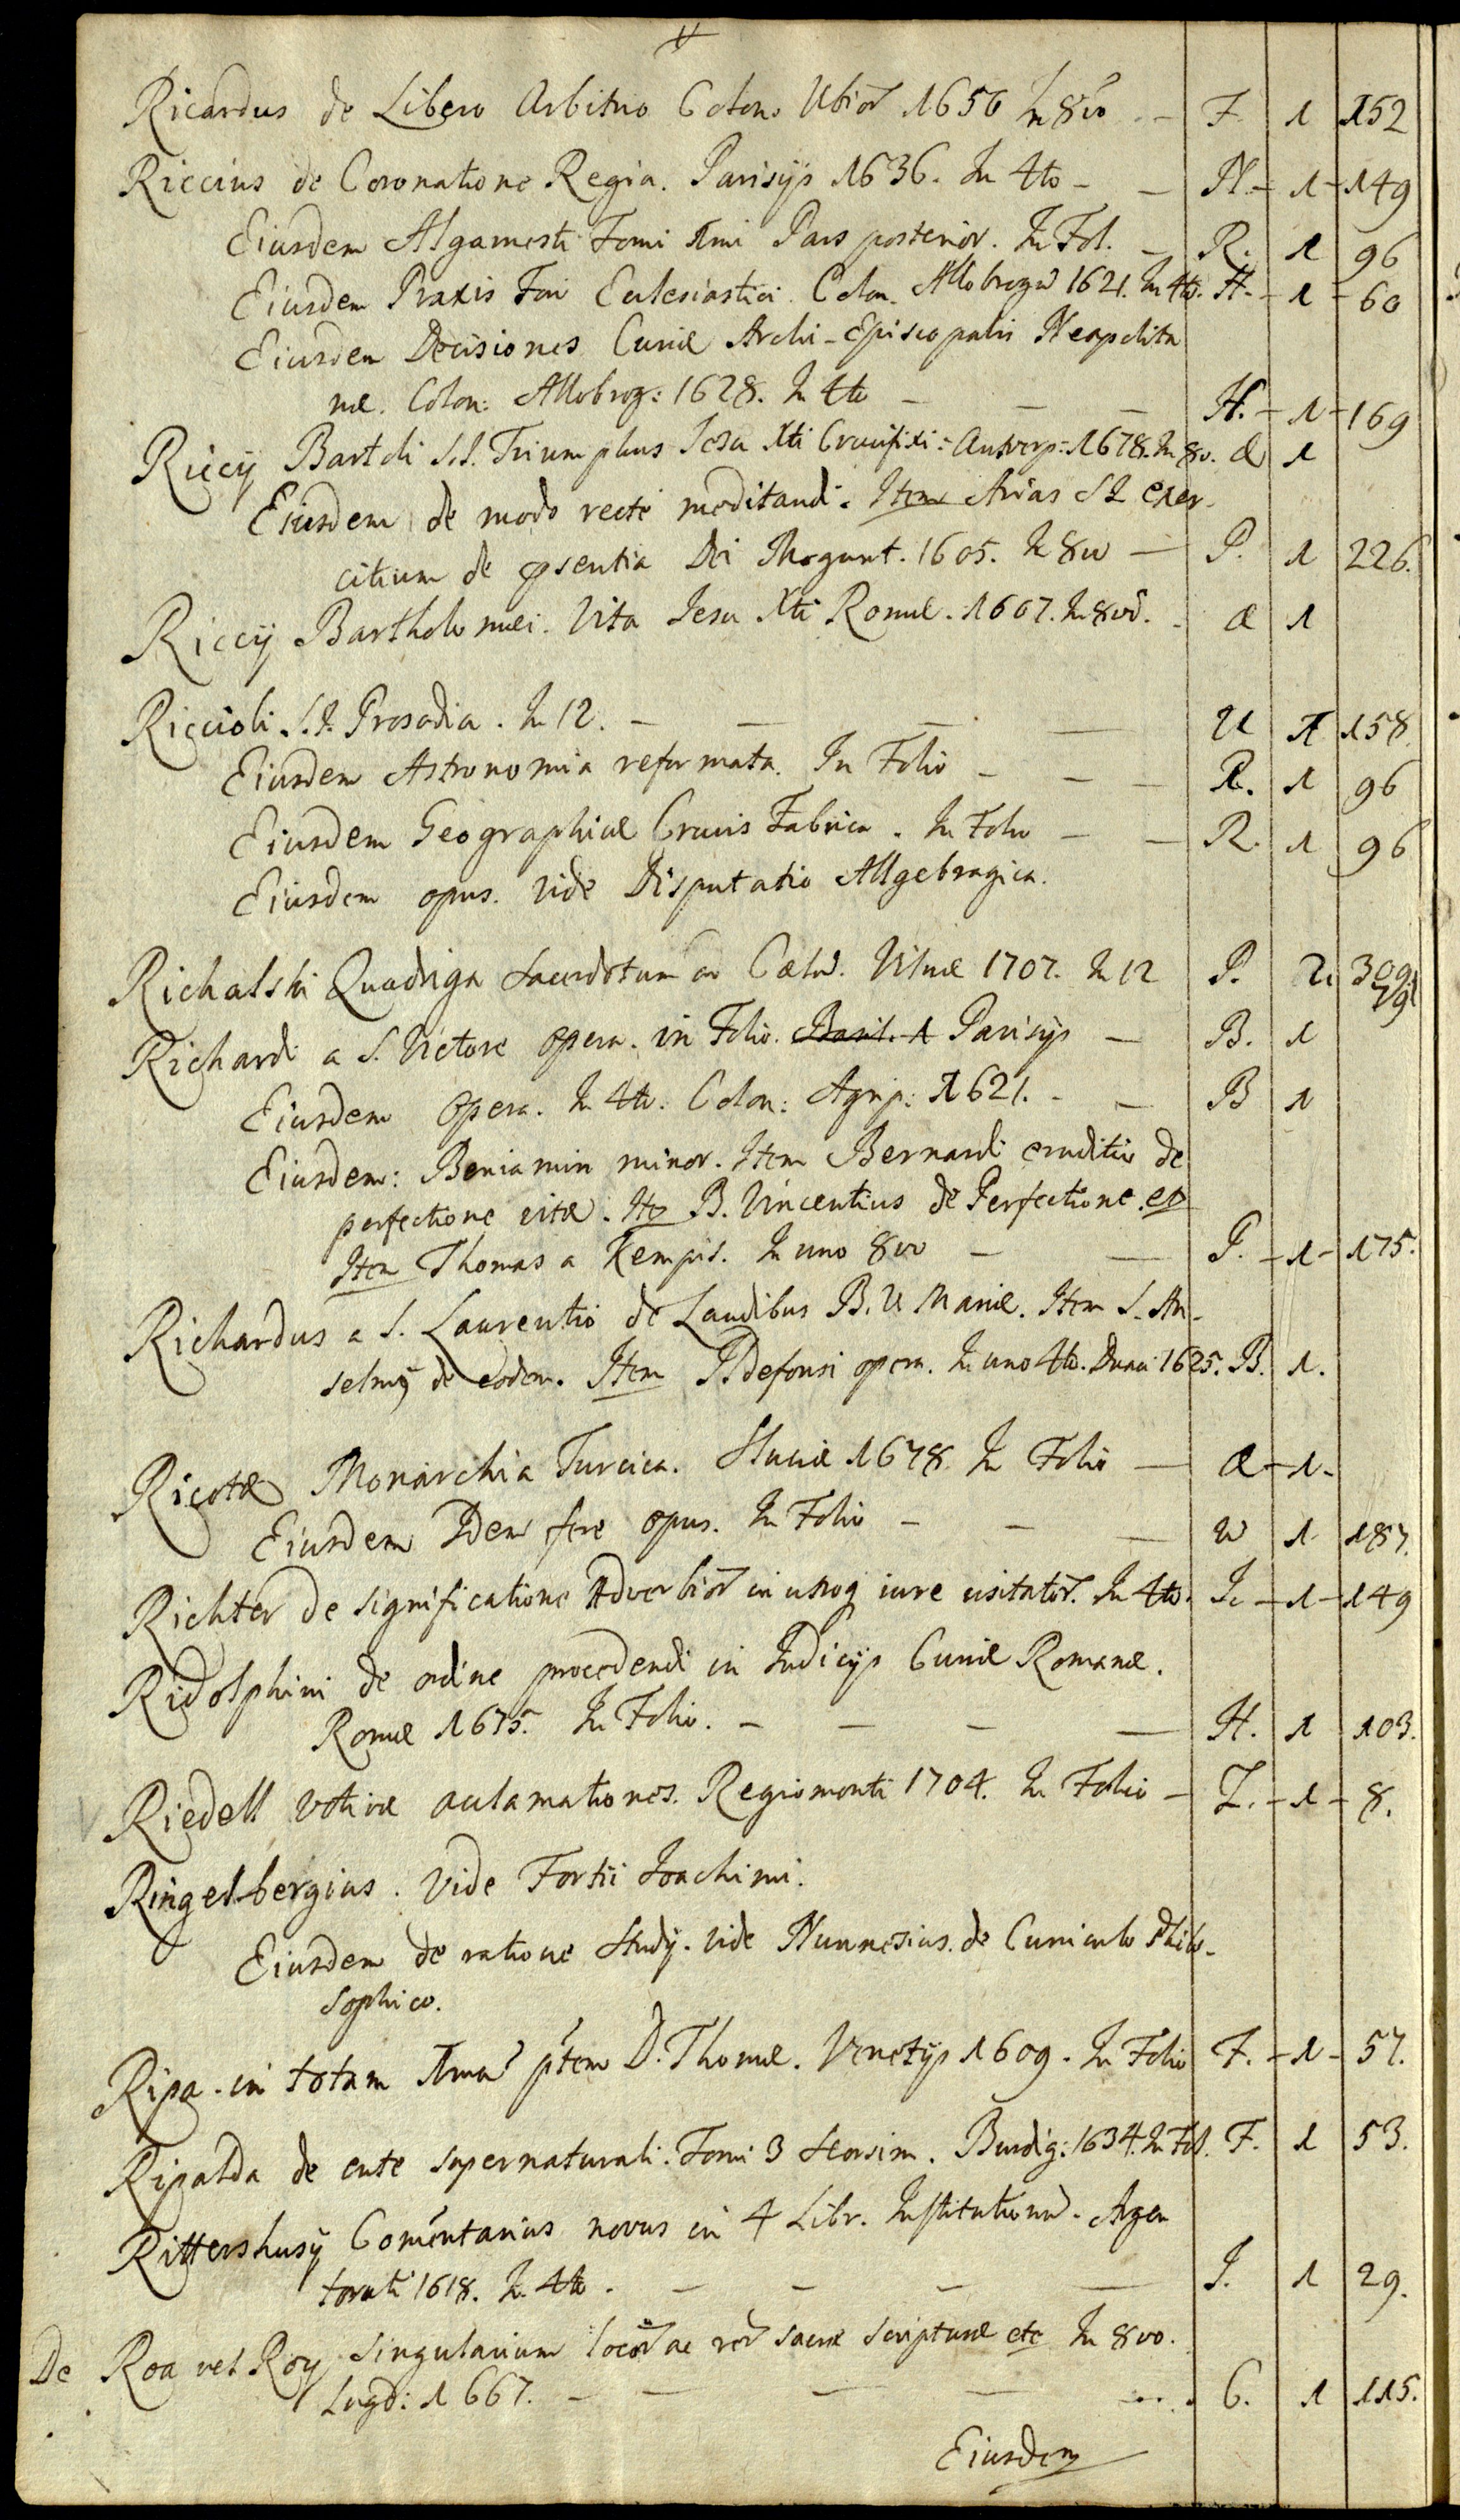 Ricardus de Libero Arbitrio Colon. Ubior 1656 In 8vo - F. 1 152
Riccius de Coronatione Regia. Parisijs 1636. In 4to - - N. - 1 - 149
Eiusdem Algamesti Tomi 1mi Pars posterior. In Fol. - R. 1 96
Eiusdem Praxis Fori Eclesiastici. Colon. Allobrogū 1621. In 4to. H. - 1 - 60
Eiusdem Decisiones Curiæ Archi-Episcopalis Neapolita
næ. Colon: Allobrog: 1628. In 4to - - - H. - 1 - 169
Riccij Bartoli S.I. Triumphus Iesu Xti Crucifixi: Antverp: 1678. In 8o. Æ 1
Eiusdem de modo recte meditandi. Item Arias S I exer-
citium de psentia Dei Mogunt. 1605. In 8vo - P. 1 226.
Riccij Bartholomæi. Vita Iesu Xti Romæ. 1607. In 8vo. - Æ 1
Riccioli S.I. Prosodia. In 12. - - - - U 1 158.
Eiusdem Astronomia reformata. In Folio - - - R. 1 96
Eiusdem Geographiæ Crucis Fabrica. In Folio - - R. 1 96
Eiusdem opus. Vide Disputatio Allgebragica.
Richalski Quadriga Sacerdotum in Cælū. Vilnæ 1707. In 12 P. 2 309
Richardi a S. Victore opera. in Folio. Basil. 1 Parisijs - B. 1
Eiusdem Opera. In 4to. Colon: Agrip: 1621. - - B 1
Eiusdem: Beniamin minor. Item Bernardi eruditio de
perfectione vitæ. Itz B. Vincentius de Perfectione et
Item Thomas a Kempis. In uno 8vo - - P. - 1 - 175.
Richardus a S. Laurentio de Laudibus B. V Mariæ. Item S. An-
selmq de eodem. Item Ildefonsi opera. In uno 4to. Duaci 1625. B. 1.
Ricotæ Monarchia Turcica. Sluciæ 1678. In Folio - Æ - 1 -
Eiusdem Idem fere opus. In Folio - - - W 1 187.
Richter de significatione Adverbior in utroq iure usitator. In 4to. I. - 1 - 149
Ridolphini de ordine procedendi in Iudicijs Curiæ Romanæ.
Romæ 1675. In Folio. - - - - H. 1 103.
Riedell Votivæ acclamationes. Regiomonti 1704. In Folio - Z. - 1 - 8.
Ringelbergius. Vide Fortii Ioachimi.
Eiusdem de ratione Studij. vide Nunnesius. de Curriculo Philo-
sophico.
Ripa. in totam 1mā ptem D. Thomæ. Venetijs 1609. In Folio F. - 1 - 57.
Ripalda de ente supernaturali. Tomi 3 Seorsim. Burdig: 1634. In Fol. F. 1 53.
Rittershusij Comentarius novus in 4 Libr. Institutionū. Argen
torati 1618. In 4to. - - - - I. 1 29.
De Roa vel Roy singularium locor ac rer sacræ scripturæ etc In 8vo.
Lugd: 1667. - - - - C. 1 115.
Eiusdem